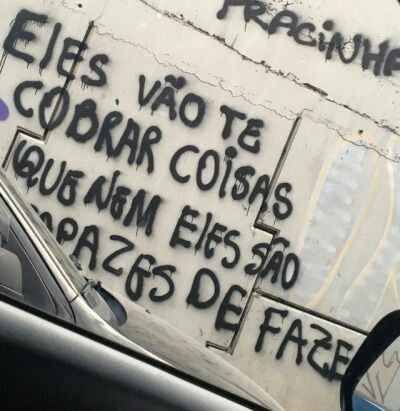 PRACINHA
ELES VÃO TE
COBRAR COISAS
QUE NEM ELES SÃO
CAPAZES DE FAZE